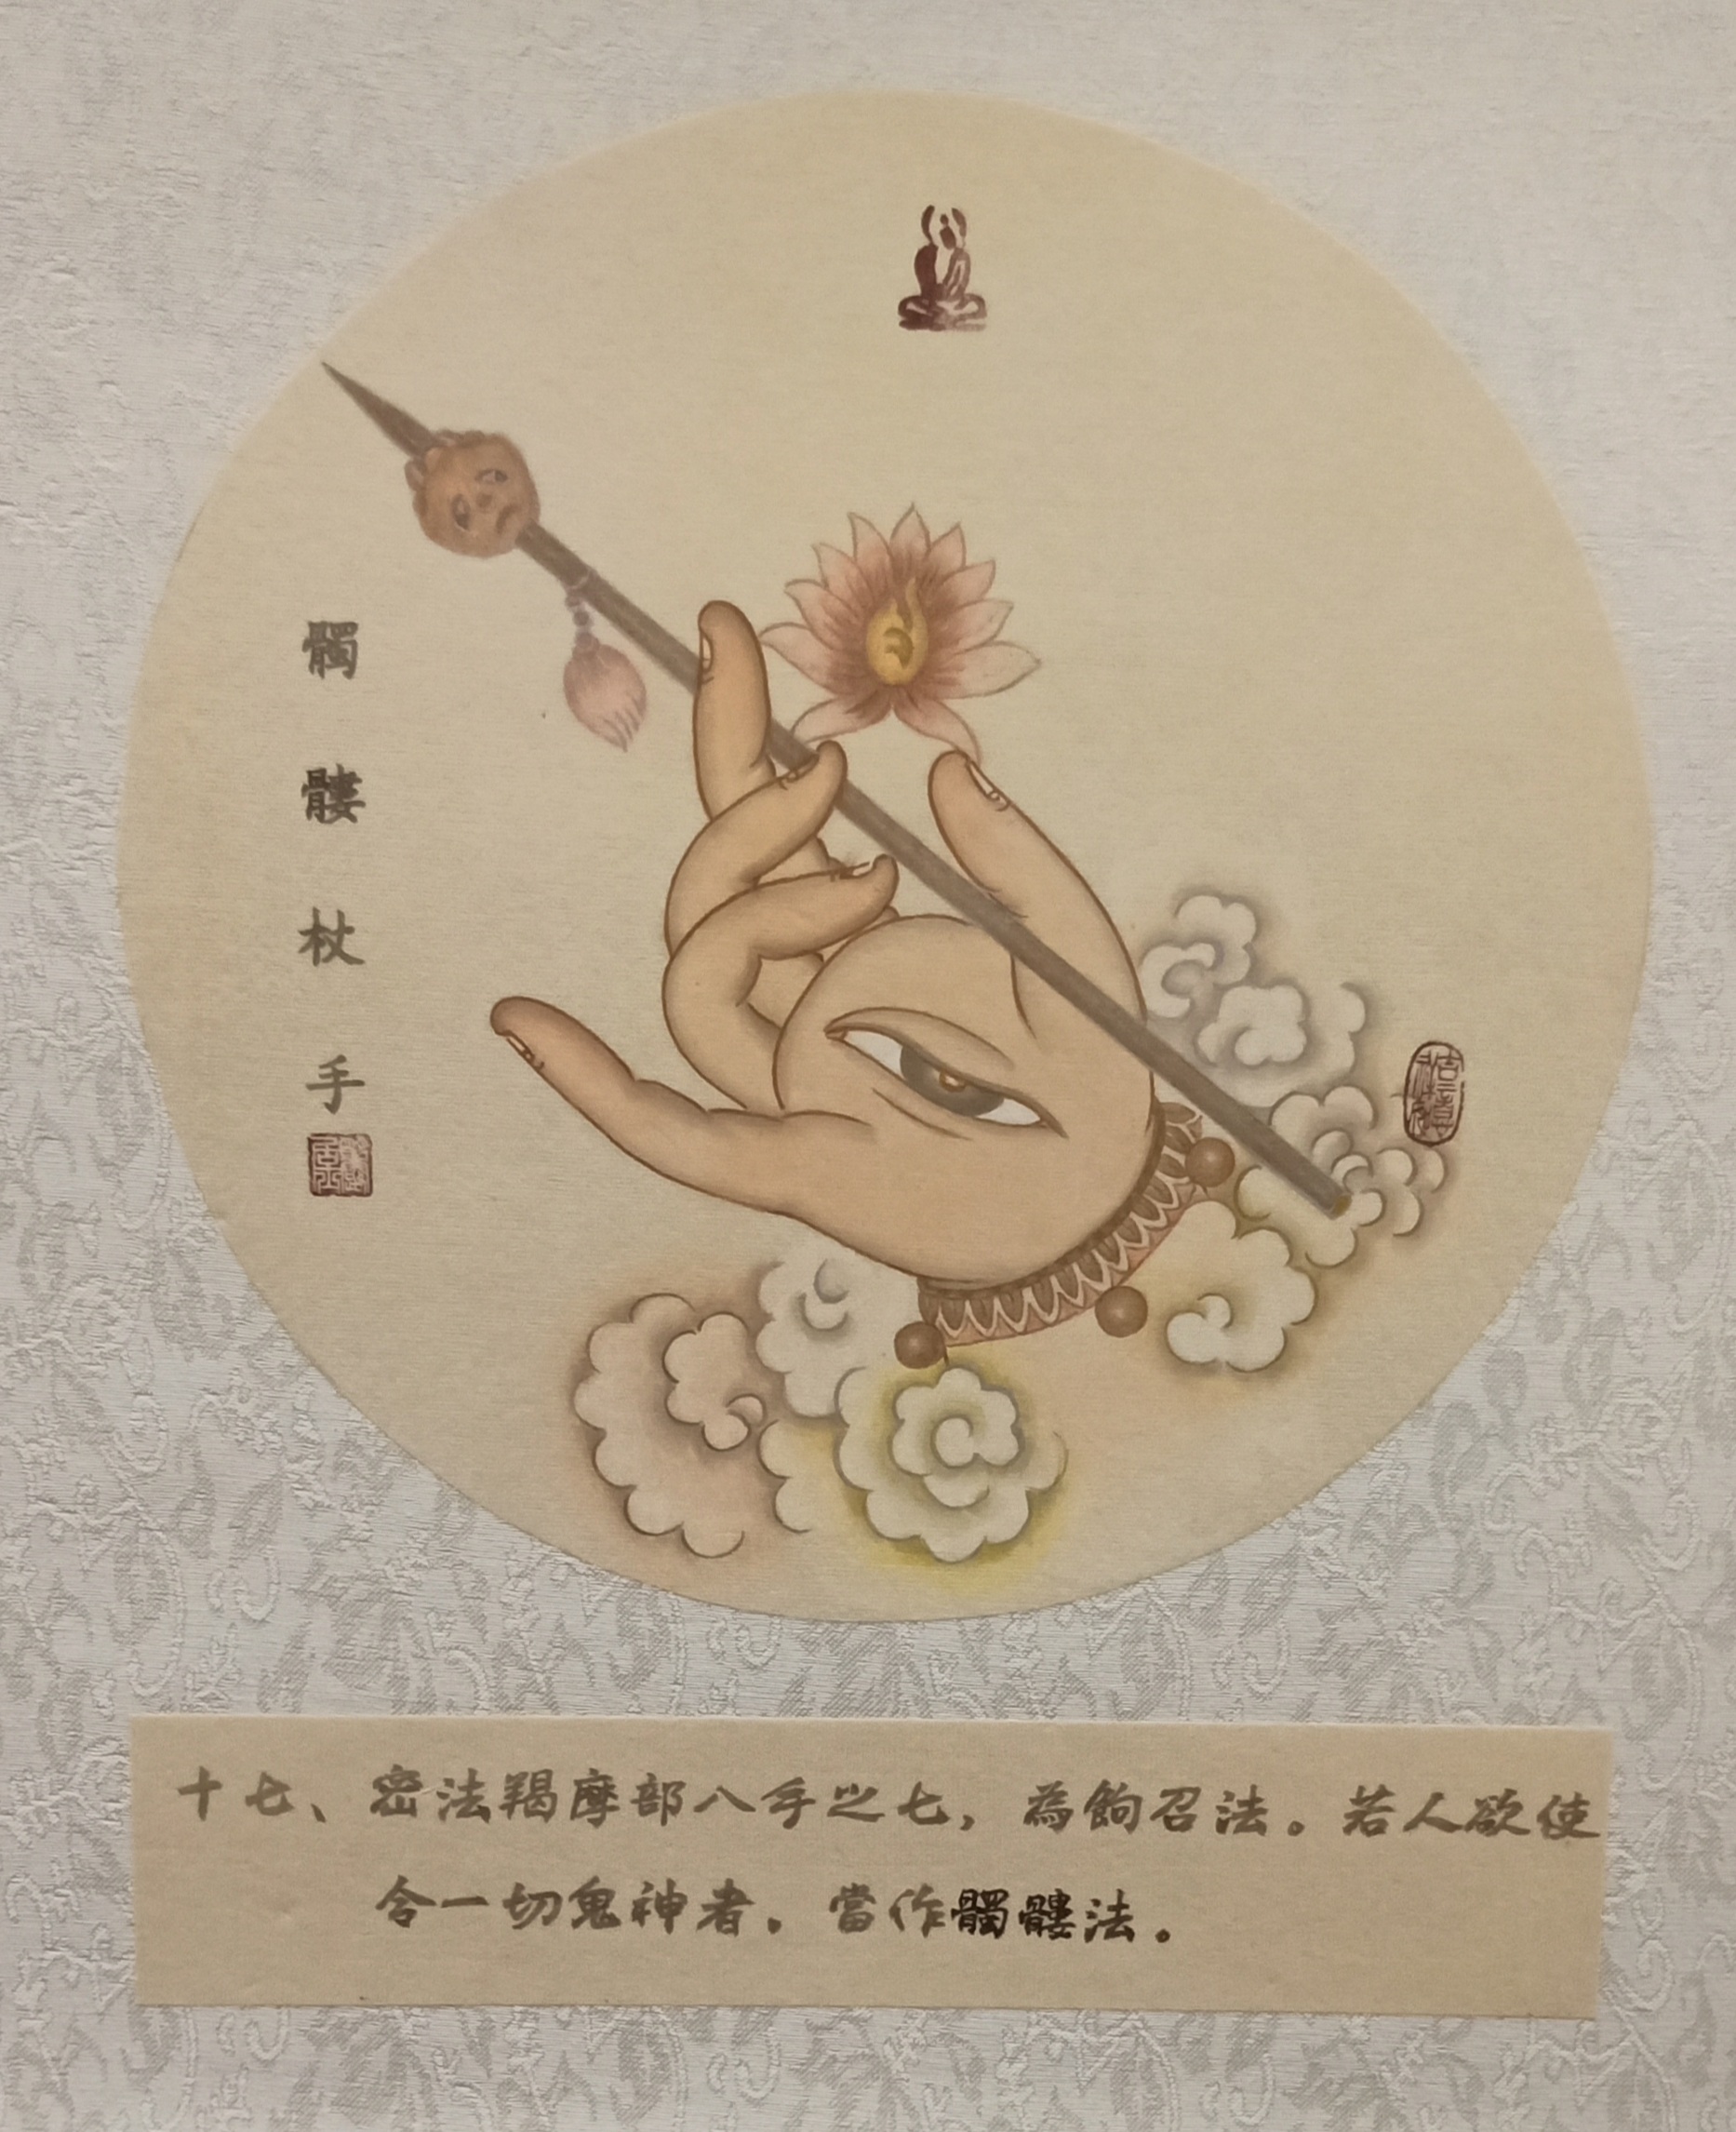 髑髏杖手
十七、密法羯摩部八手之七，為鉤召法。若人欲使
令一切鬼神者，當作髑髏法。